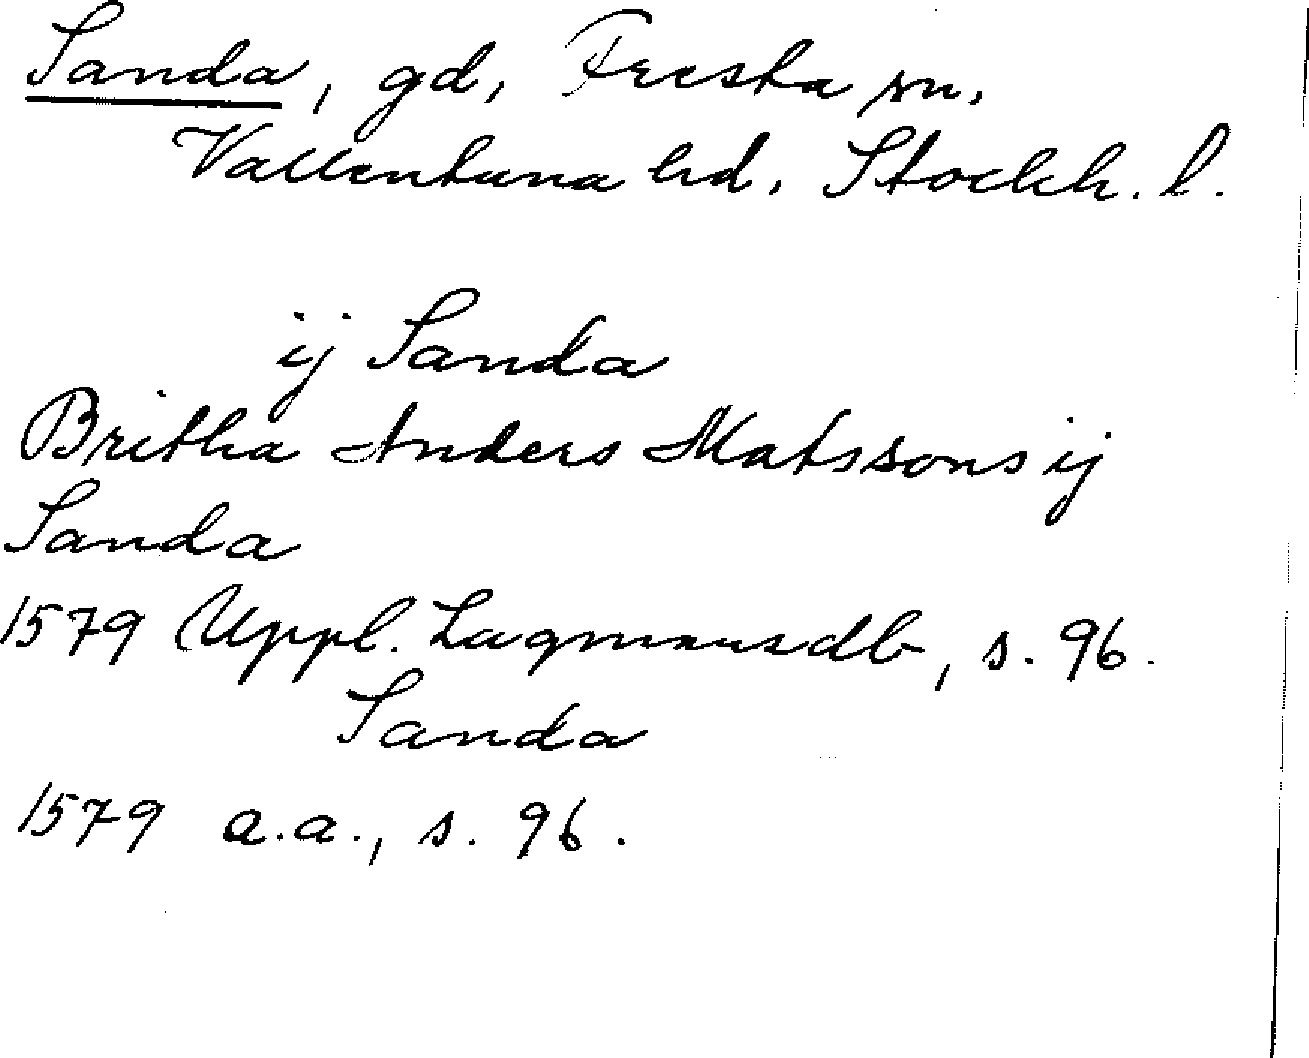 Sanda, gd, Fresta sn.
Vallentuna hd. Stockh. l.
ij Sanda
Britha Anders Matssons ij
Sanda
1579 Uppl. Lagmansdb, s. 96.
Sanda
1579 a.a., s. 96.